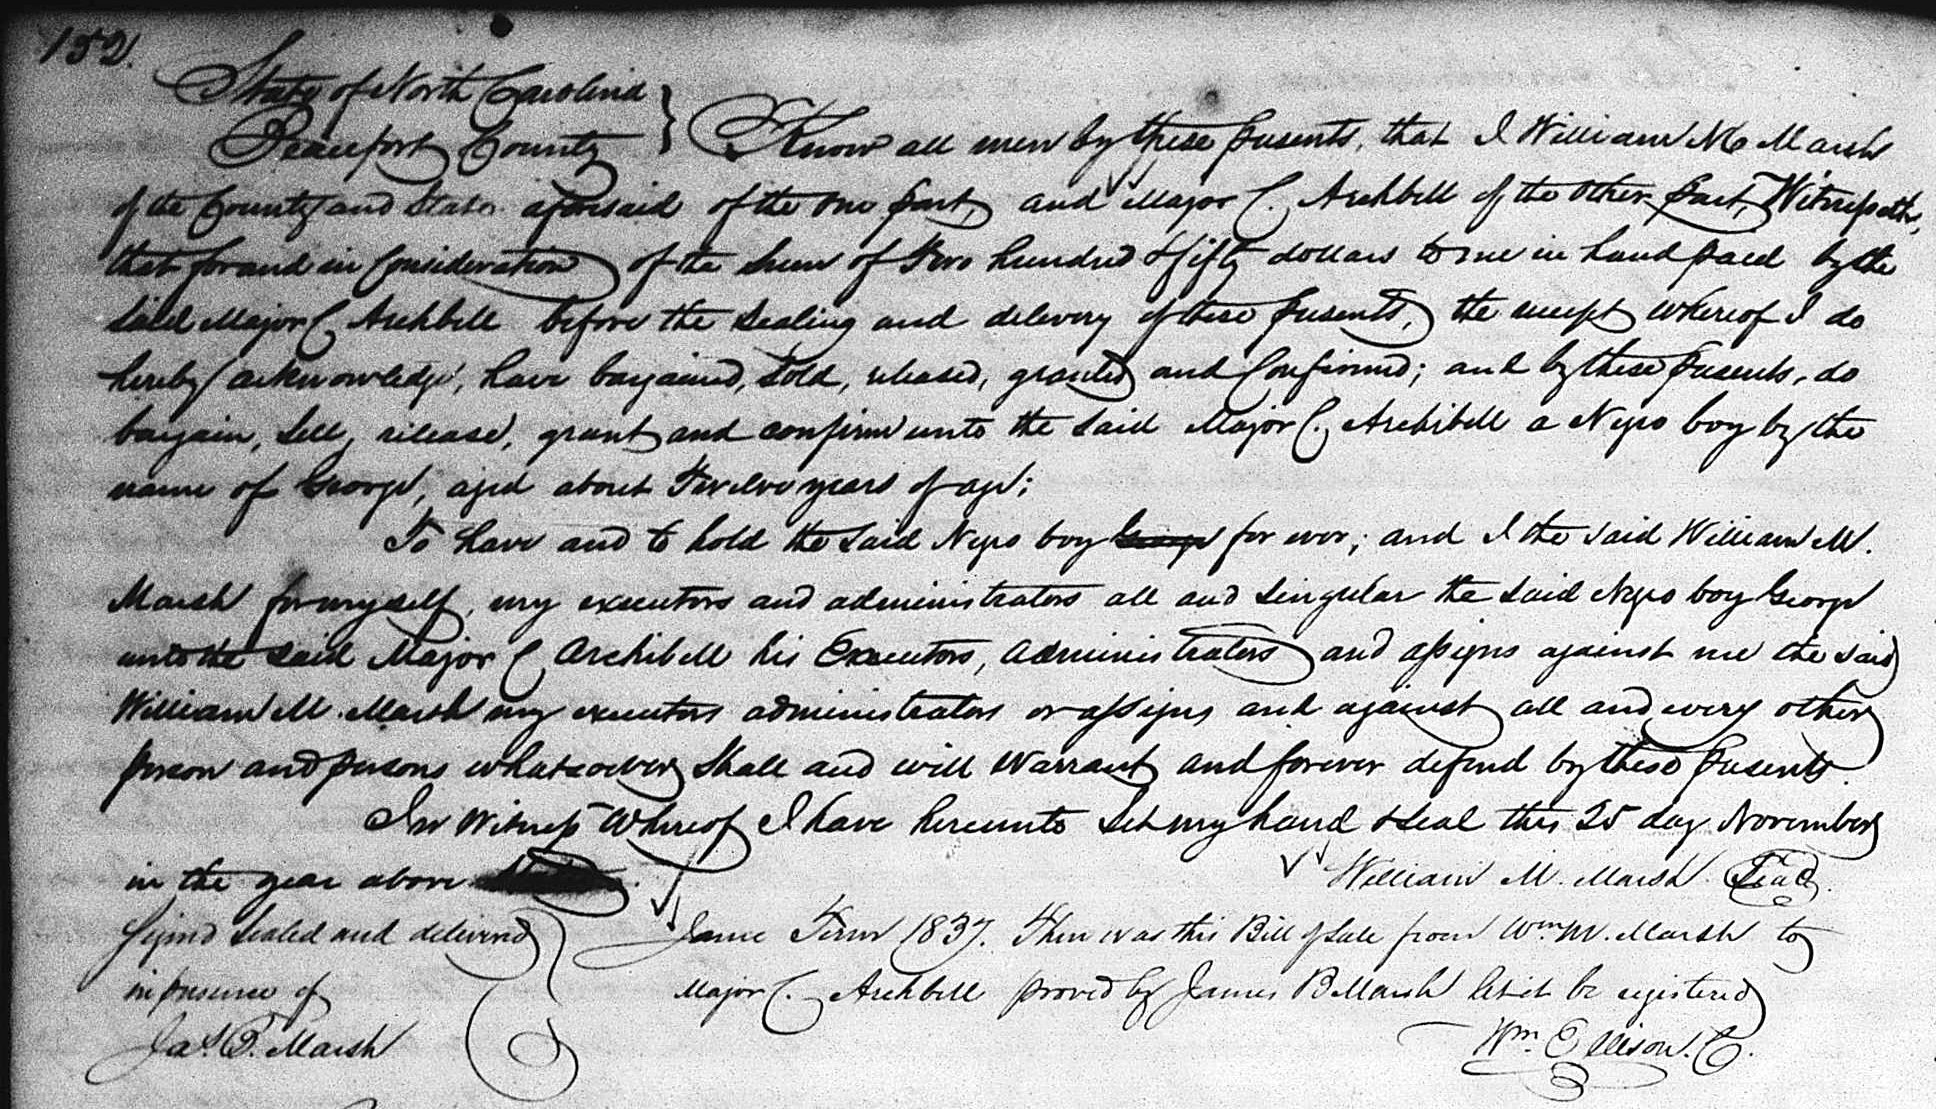 152.
State of North Carolina
Beaufort County } Know all men by these presents, that I William M Marsh
of the County and State aforesaid of the one part, and Major C. Archbell of the other part, Witnesseth,
that for and in Consideration of the Sum of Two hundred & fifty dollars to me in hand paid by the
said Major C Archbell before the sealing and delivery of these presents, the receipt whereof I do
hereby acknowledge, have bargained, sold, released, granted and Confirmed; and by these presents, do
bargain, sell, release, grant and confirm unto the said Major C. Archibell a Negro boy by the
name of George, aged about Twelve years of age;
To have and to hold the said Negro boy George for ever; and I the said William M.
Marsh for myself, my executors and administrators all and singular the said Negro boy George
unto the said Major C Archibell his Executors, administrators and assigns against me the said
William M. Marsh my executors administrators or assigns and against all and every other
person and persons whatsoever shall and will Warrant and forever defend by these presents.
In Witness Whereof I have hereunto set my hand & seal this 25 day November
in the year above
William M. Marsh Seal
Signd sealed and deliverd
in presence of
Jas. B. Marsh
June Term 1837. Then was this Bill of Sale from Wm. M. Marsh to
Major C. Archbell proved by James B Marsh let it be registered
Wm. Ellison. C.